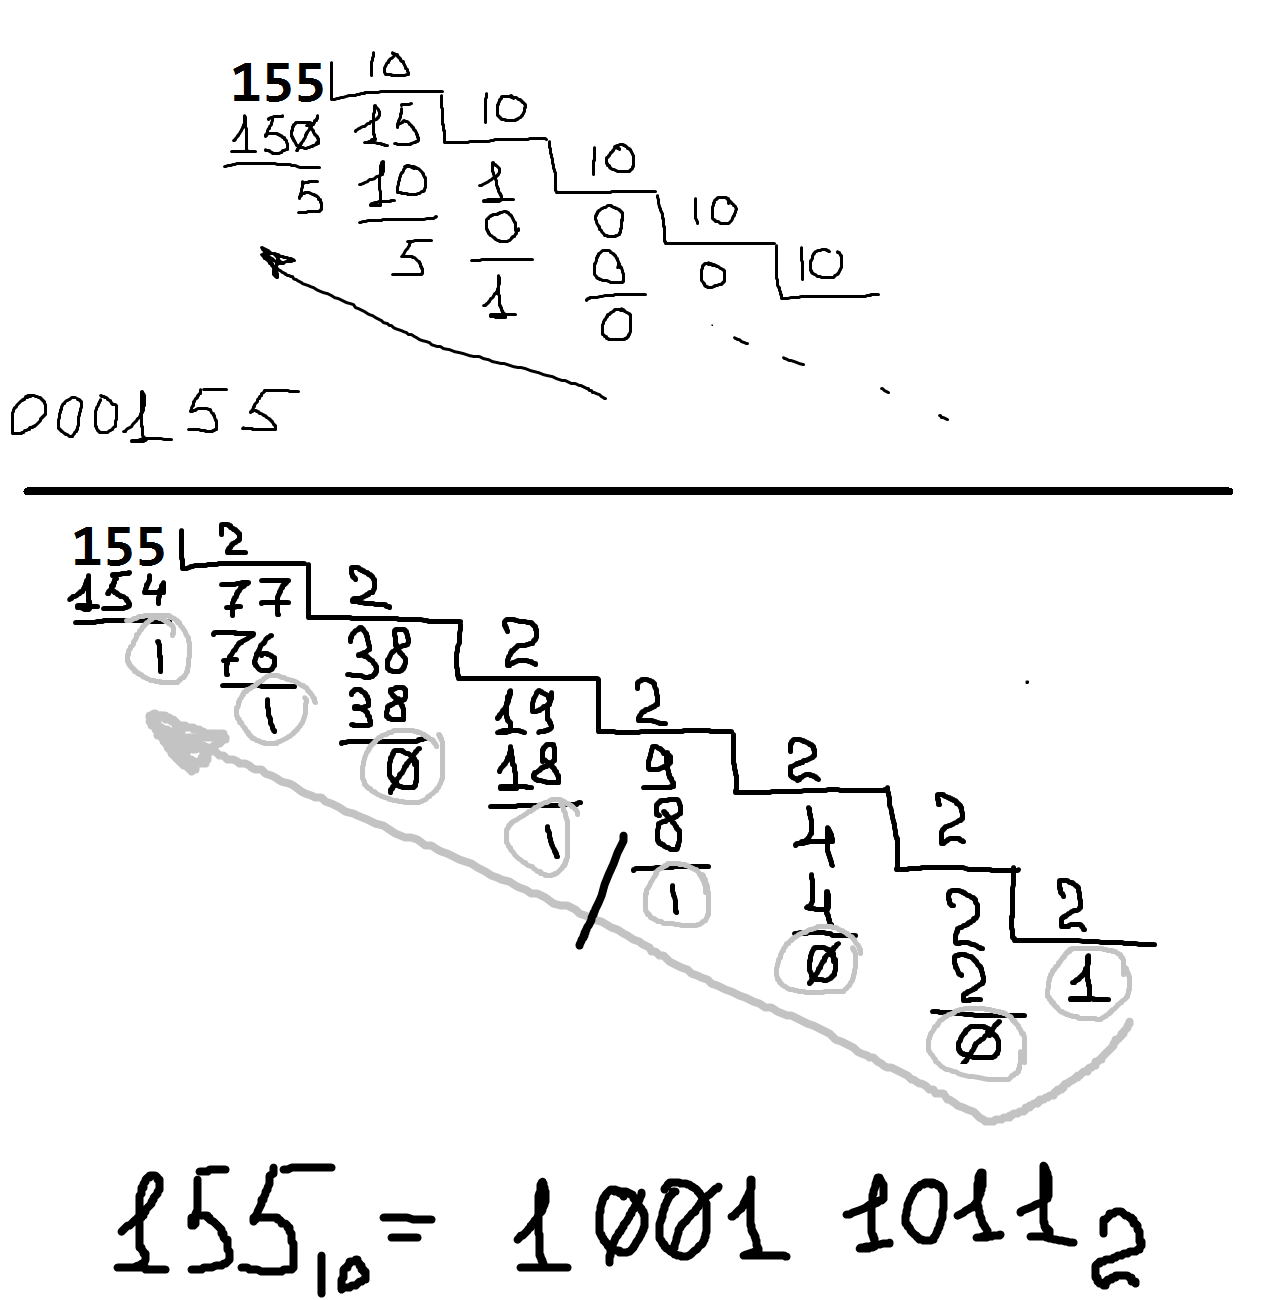 155 10
150 15 10
5 10 1 10
5 0 0 10
1 0 0 10
0
000155
155 2
154 77 2
1 76 38 2
1 38 19 2
0 18 9 2
1 8 4 2
1 4 2 2
0 2 1
0
155₁₀ = 1001 1011₂